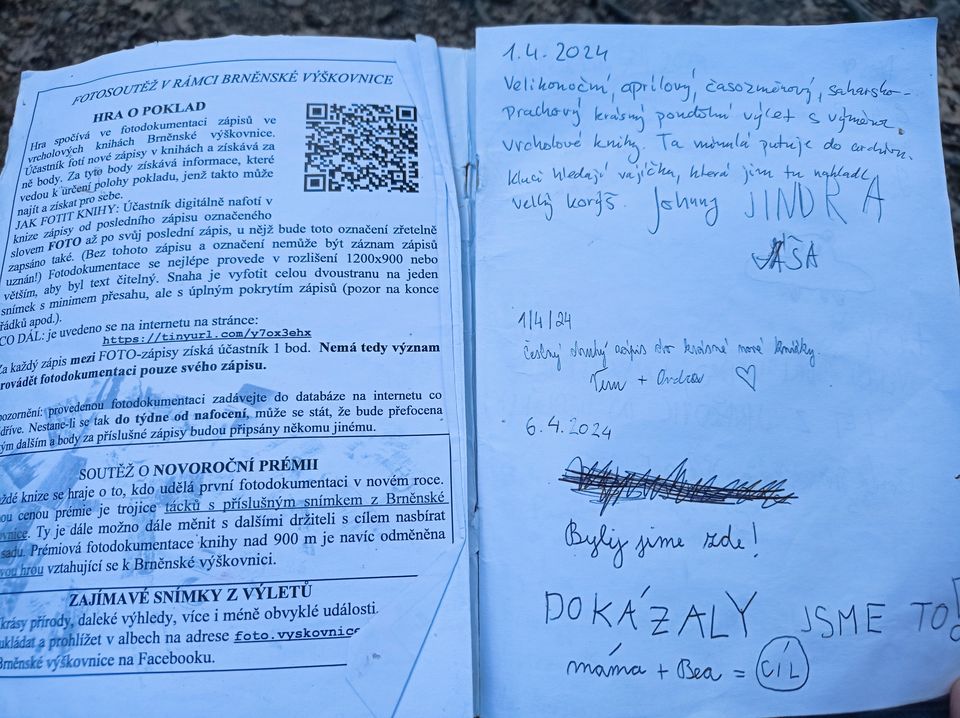 FOTOSOUTĚŽ V RÁMCI BRNĚNSKÉ VÝŠKOVNICE
HRA O POKLAD
Hra spočívá ve fotodokumentaci zápisů ve
vrcholových knihách Brněnské výškovnice.
Účastník fotí nové zápisy v knihách a získává za
ně body. Za tyto body získává informace, které
vedou k určení polohy pokladu, jenž takto může
najít a získat pro sebe.
JAK FOTIT KNIHY: Účastník digitálně nafotí v
knize zápisy od posledního zápisu označeného
slovem FOTO až po svůj poslední zápis, u nějž bude toto označení zřetelně
zapsáno také. (Bez tohoto zápisu a označení nemůže být záznam zápisů
uznán!) Fotodokumentace se nejlépe provede v rozlišení 1200x900 nebo
větším, aby byl text čitelný. Snaha je vyfotit celou dvoustranu na jeden
snímek s minimem přesahu, ale s úplným pokrytím zápisů (pozor na konce
řádků apod.).
CO DÁL: je uvedeno se na internetu na stránce:
https://tinyurl.com/y7ox3ehx
Za každý zápis mezi FOTO-zápisy získá účastník 1 bod. Nemá tedy význam
rovádět fotodokumentaci pouze svého zápisu.
pozornění: provedenou fotodokumentaci zadávejte do databáze na internetu co
dříve. Nestane-li se tak do týdne od nafocení, může se stát, že bude přefocena
ým dalším a body za příslušné zápisy budou připsány někomu jinému.
SOUTĚŽ O NOVOROČNÍ PRÉMII
ždé knize se hraje o to, kdo udělá první fotodokumentaci v novém roce.
ou cenou prémie je trojice tácků s příslušným snímkem z Brněnské
vnice. Ty je dále možno dále měnit s dalšími držiteli s cílem nasbírat
sadu. Prémiová fotodokumentace knihy nad 900 m je navíc odměněna
vou hrou vztahující se k Brněnské výškovnici.
ZAJÍMAVÉ SNÍMKY Z VÝLETŮ
krásy přírody, daleké výhledy, více i méně obvyklé události
ukládat a prohlížet v albech na adrese foto.vyskovnice
Brněnské výškovnice na Facebooku.
1.4.2024
Velikonoční, aprílový, časozměrový, saharsko-
prachový krásný pondělní výlet s výměnou
vrcholové knihy. Ta minulá putuje do archivu.
Kluci hledají vajíčka, která jim tu nakladl
velký korýš. Johnny JINDRA
VAŠA
1/4/24
Čestný druhý zápis do krásné nové knížky.
+
6.4.2024
Byly jsme zde!
DOKÁZALY JSME TO!
máma + Bea = CÍL